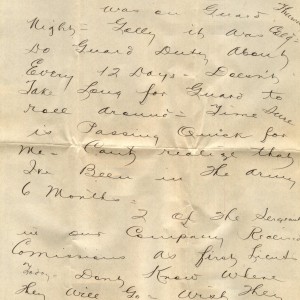 was on Guard Thurs
Night - Golly it was Cold
Do Guard Duty About
Every 12 Days - Doesn't
Take Long for Guard to
roll around - Time Sure
is Passing Quick for
Me - Can't realize that
I've Been in The Army
6 Months -
2 of The Sergeants
in our Company Received
Comissions as first Lieut-
Today - Dont Know Where
They Will Go - Wish They